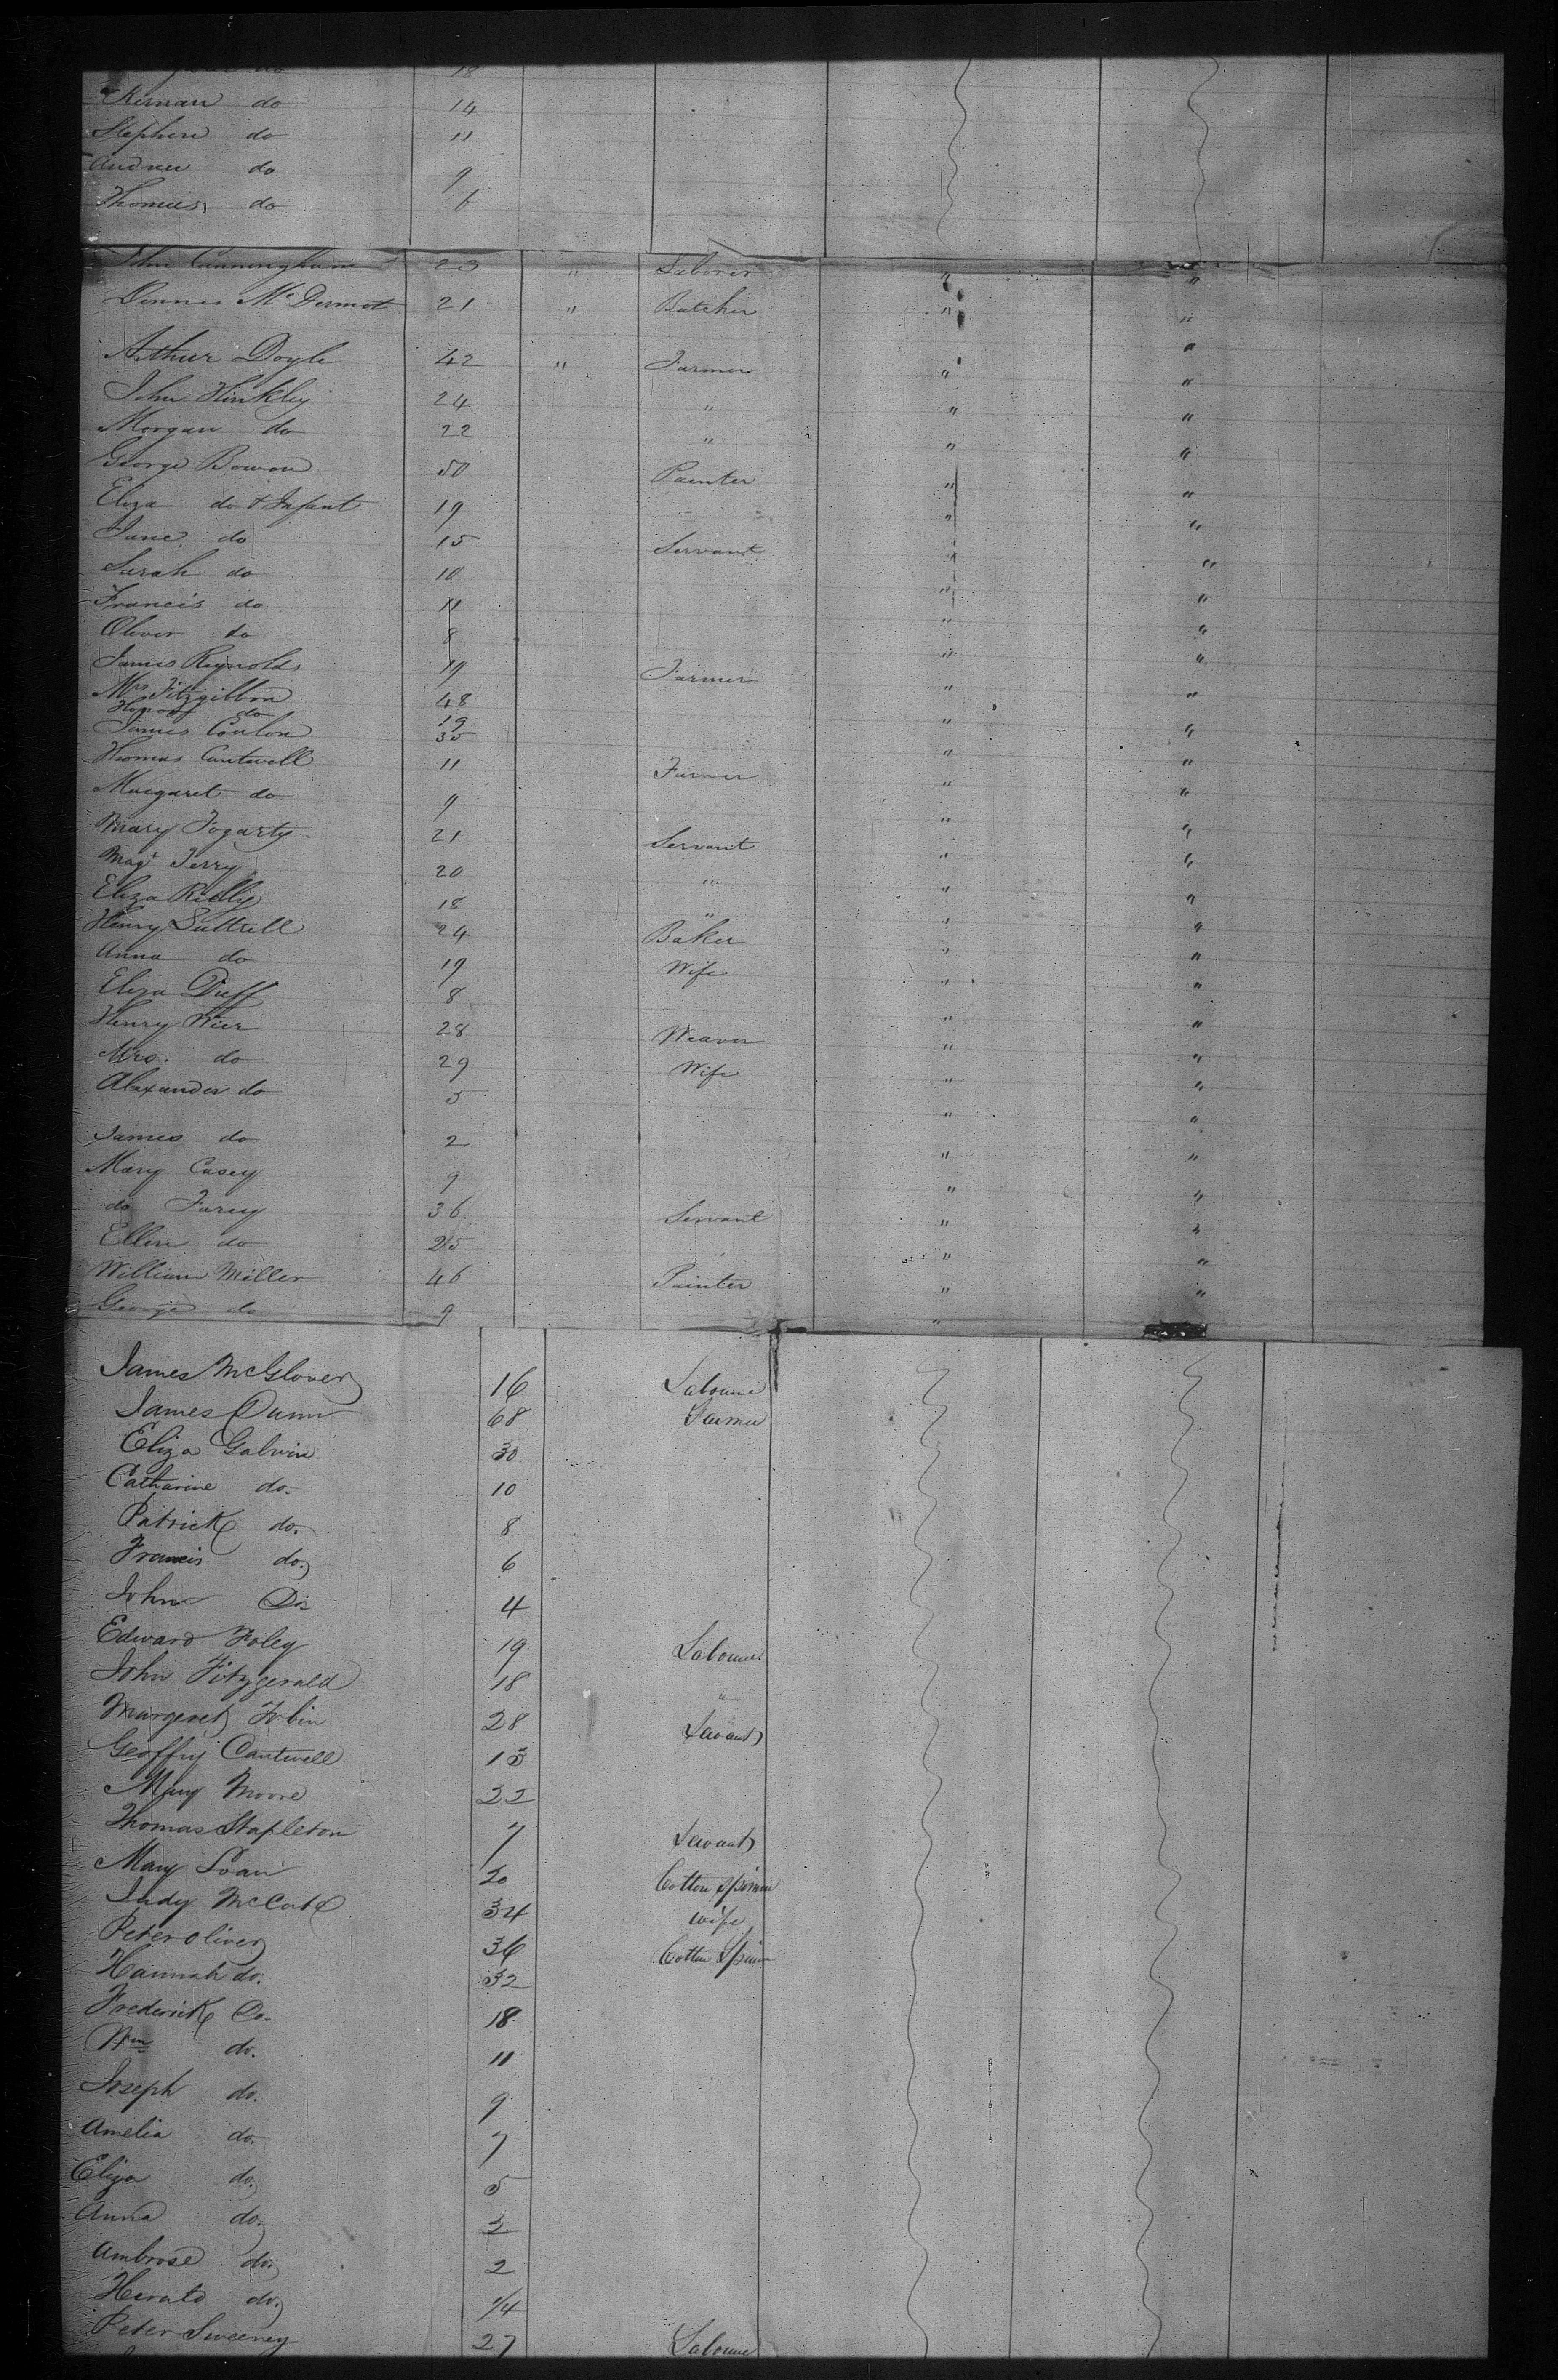 do 18
Kiernan do 14
Stephen do 11
Andrew do 9
Thomas do 6
John Cunningham 23 " Laborer " "
Dennis McDermot 21 " Butcher " "
Arthur Doyle 42 " Farmer " "
John Hinkley 24 " " "
Morgan do 22 " " "
George Bowon 50 Painter " "
Eliza do + Infant 19 " "
Jane do 15 Servant " "
Sarah do 10 " "
Francis do 11 " "
Oliver do 8 " "
James Reynolds 19 Farmer " "
Mrs Fitzgibbon 48 " "
do 19
James Conlon 35 " "
Thomas Cantwell 11 Farmer " "
Margaret do 9 " "
Mary Fogarty 21 Servant " "
Magt Terry 20 " " "
Eliza Reilly 18 " " "
Henry Luttrell 24 Baker " "
Anna do 19 Wife " "
Eliza Duff 8 " "
Henry Wier 28 Weaver " "
Mrs. do 29 Wife " "
Alexander do 3 " "
James do 2 " "
Mary Casey 9 " "
do Furey 36 Servant " "
Ellen do 25 " " "
William Miller 46 Painter " "
George do 9 "
James McGlover 16 Labourer
James Dunn 68 Farmer
Eliza Galvin 30
Catharine do. 10
Patrick do. 8
Francis do. 6
John Do 4
Edward Foley 19 Labourer
John Fitzgerald 18 "
Margeret Tobin 28 Servant
Geoffry Cantwell 13
Mary Moore 22
Thomas Stapleton 7 Servant
Mary Loan 20 Cotton spinner
Judy 34 wife
Peter Oliver 36 Cotton Spinner
Hannah do. 32
Frederick Do. 18
Wm do. 11
Joseph do. 9
Amelia do. 7
Eliza do. 5
Anna do. 3
Ambrose do. 2
do. 1/4
Peter Sweeney 27 Labourer